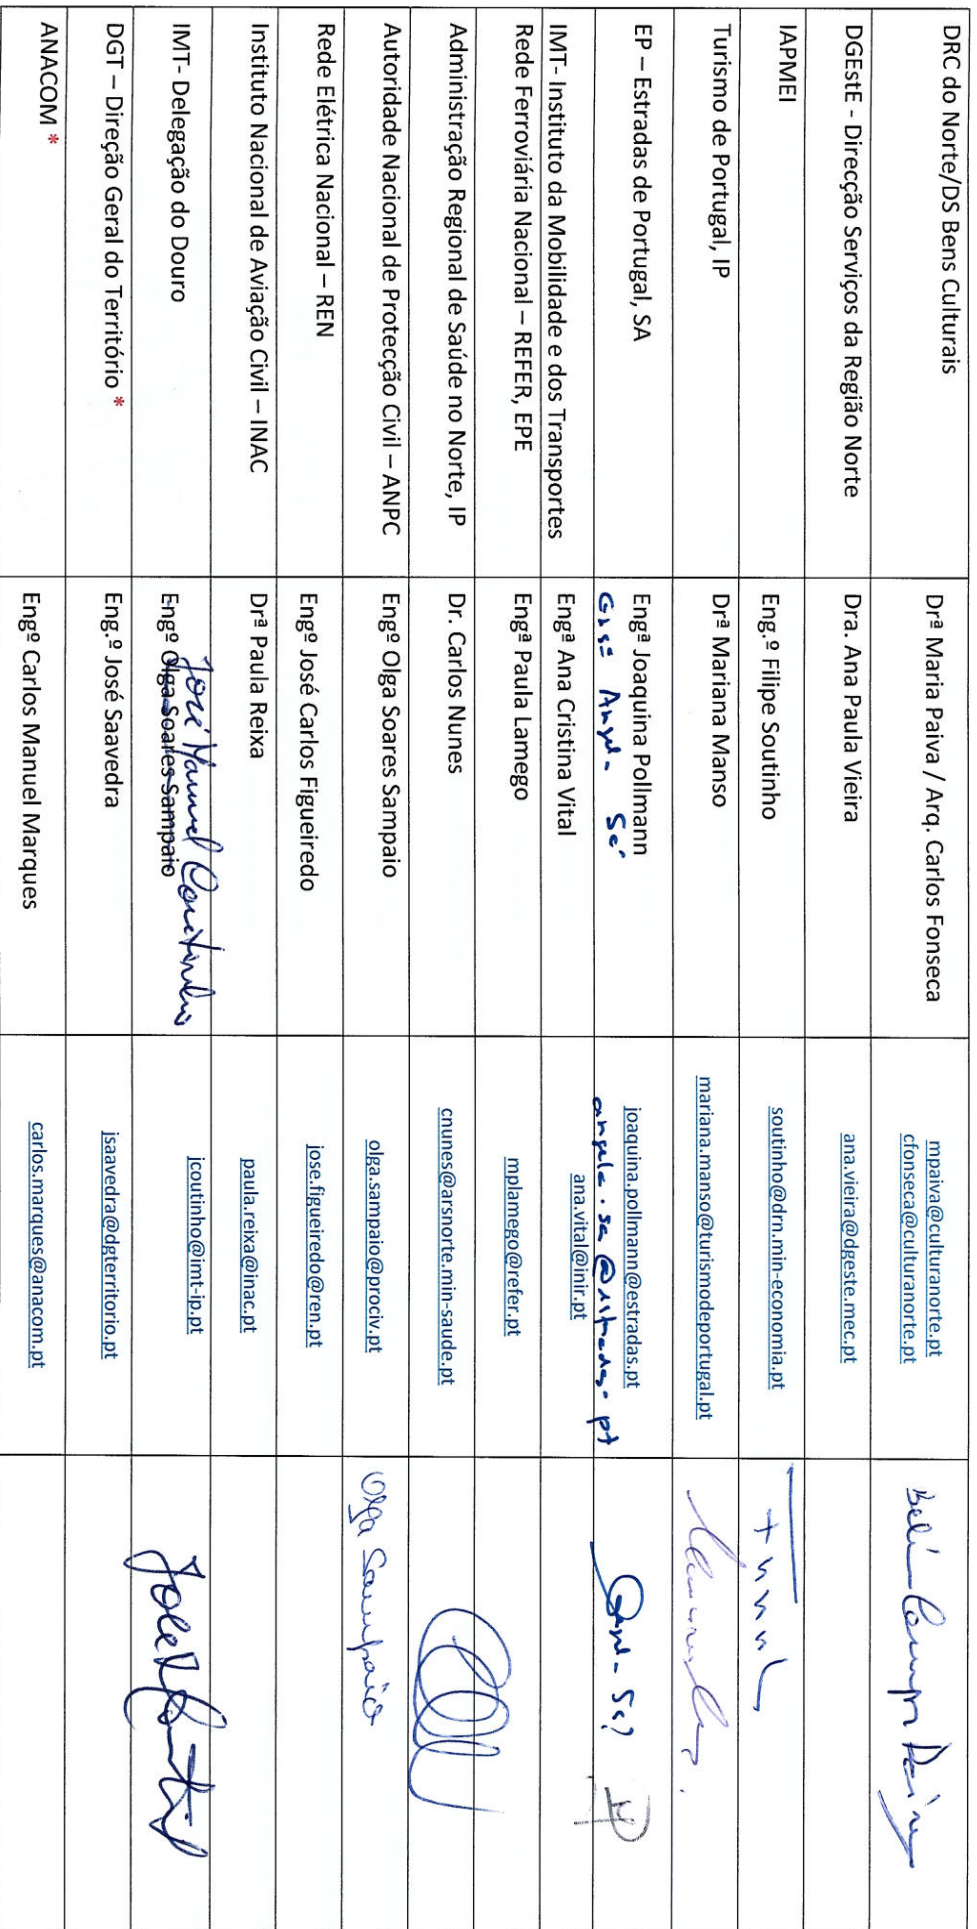 DRC do Norte/DS Bens Culturais
Drª Maria Paiva / Arq. Carlos Fonseca
mpaiva@culturanorte.pt
cfonseca@culturanorte.pt
DGEstE - Direcção Serviços da Região Norte
Dra. Ana Paula Vieira
ana.vieira@dgeste.mec.pt
IAPMEI
Eng.º Filipe Soutinho
soutinho@drn.min-economia.pt
Turismo de Portugal, IP
Drª Mariana Manso
mariana.manso@turismodeportugal.pt
EP – Estradas de Portugal, SA
Engª Joaquina Pollmann
Angela Sá
joaquina.pollmann@estradas.pt
angela.sa@estradas.pt
Angela Sá
IMT- Instituto da Mobilidade e dos Transportes
Engª Ana Cristina Vital
ana.vital@inir.pt
Rede Ferroviária Nacional – REFER, EPE
Engª Paula Lamego
mplamego@refer.pt
Administração Regional de Saúde no Norte, IP
Dr. Carlos Nunes
cnunes@arsnorte.min-saude.pt
Autoridade Nacional de Protecção Civil – ANPC
Engº Olga Soares Sampaio
olga.sampaio@prociv.pt
Olga Sampaio
Rede Elétrica Nacional – REN
Engº José Carlos Figueiredo
jose.figueiredo@ren.pt
Instituto Nacional de Aviação Civil – INAC
Drª Paula Reixa
paula.reixa@inac.pt
IMT- Delegação do Douro
José Manuel Coutinho
Engº Olga Soares Sampaio
jcoutinho@imt-ip.pt
DGT – Direção Geral do Território *
Eng.º José Saavedra
jsaavedra@dgterritorio.pt
ANACOM *
Engº Carlos Manuel Marques
carlos.marques@anacom.pt